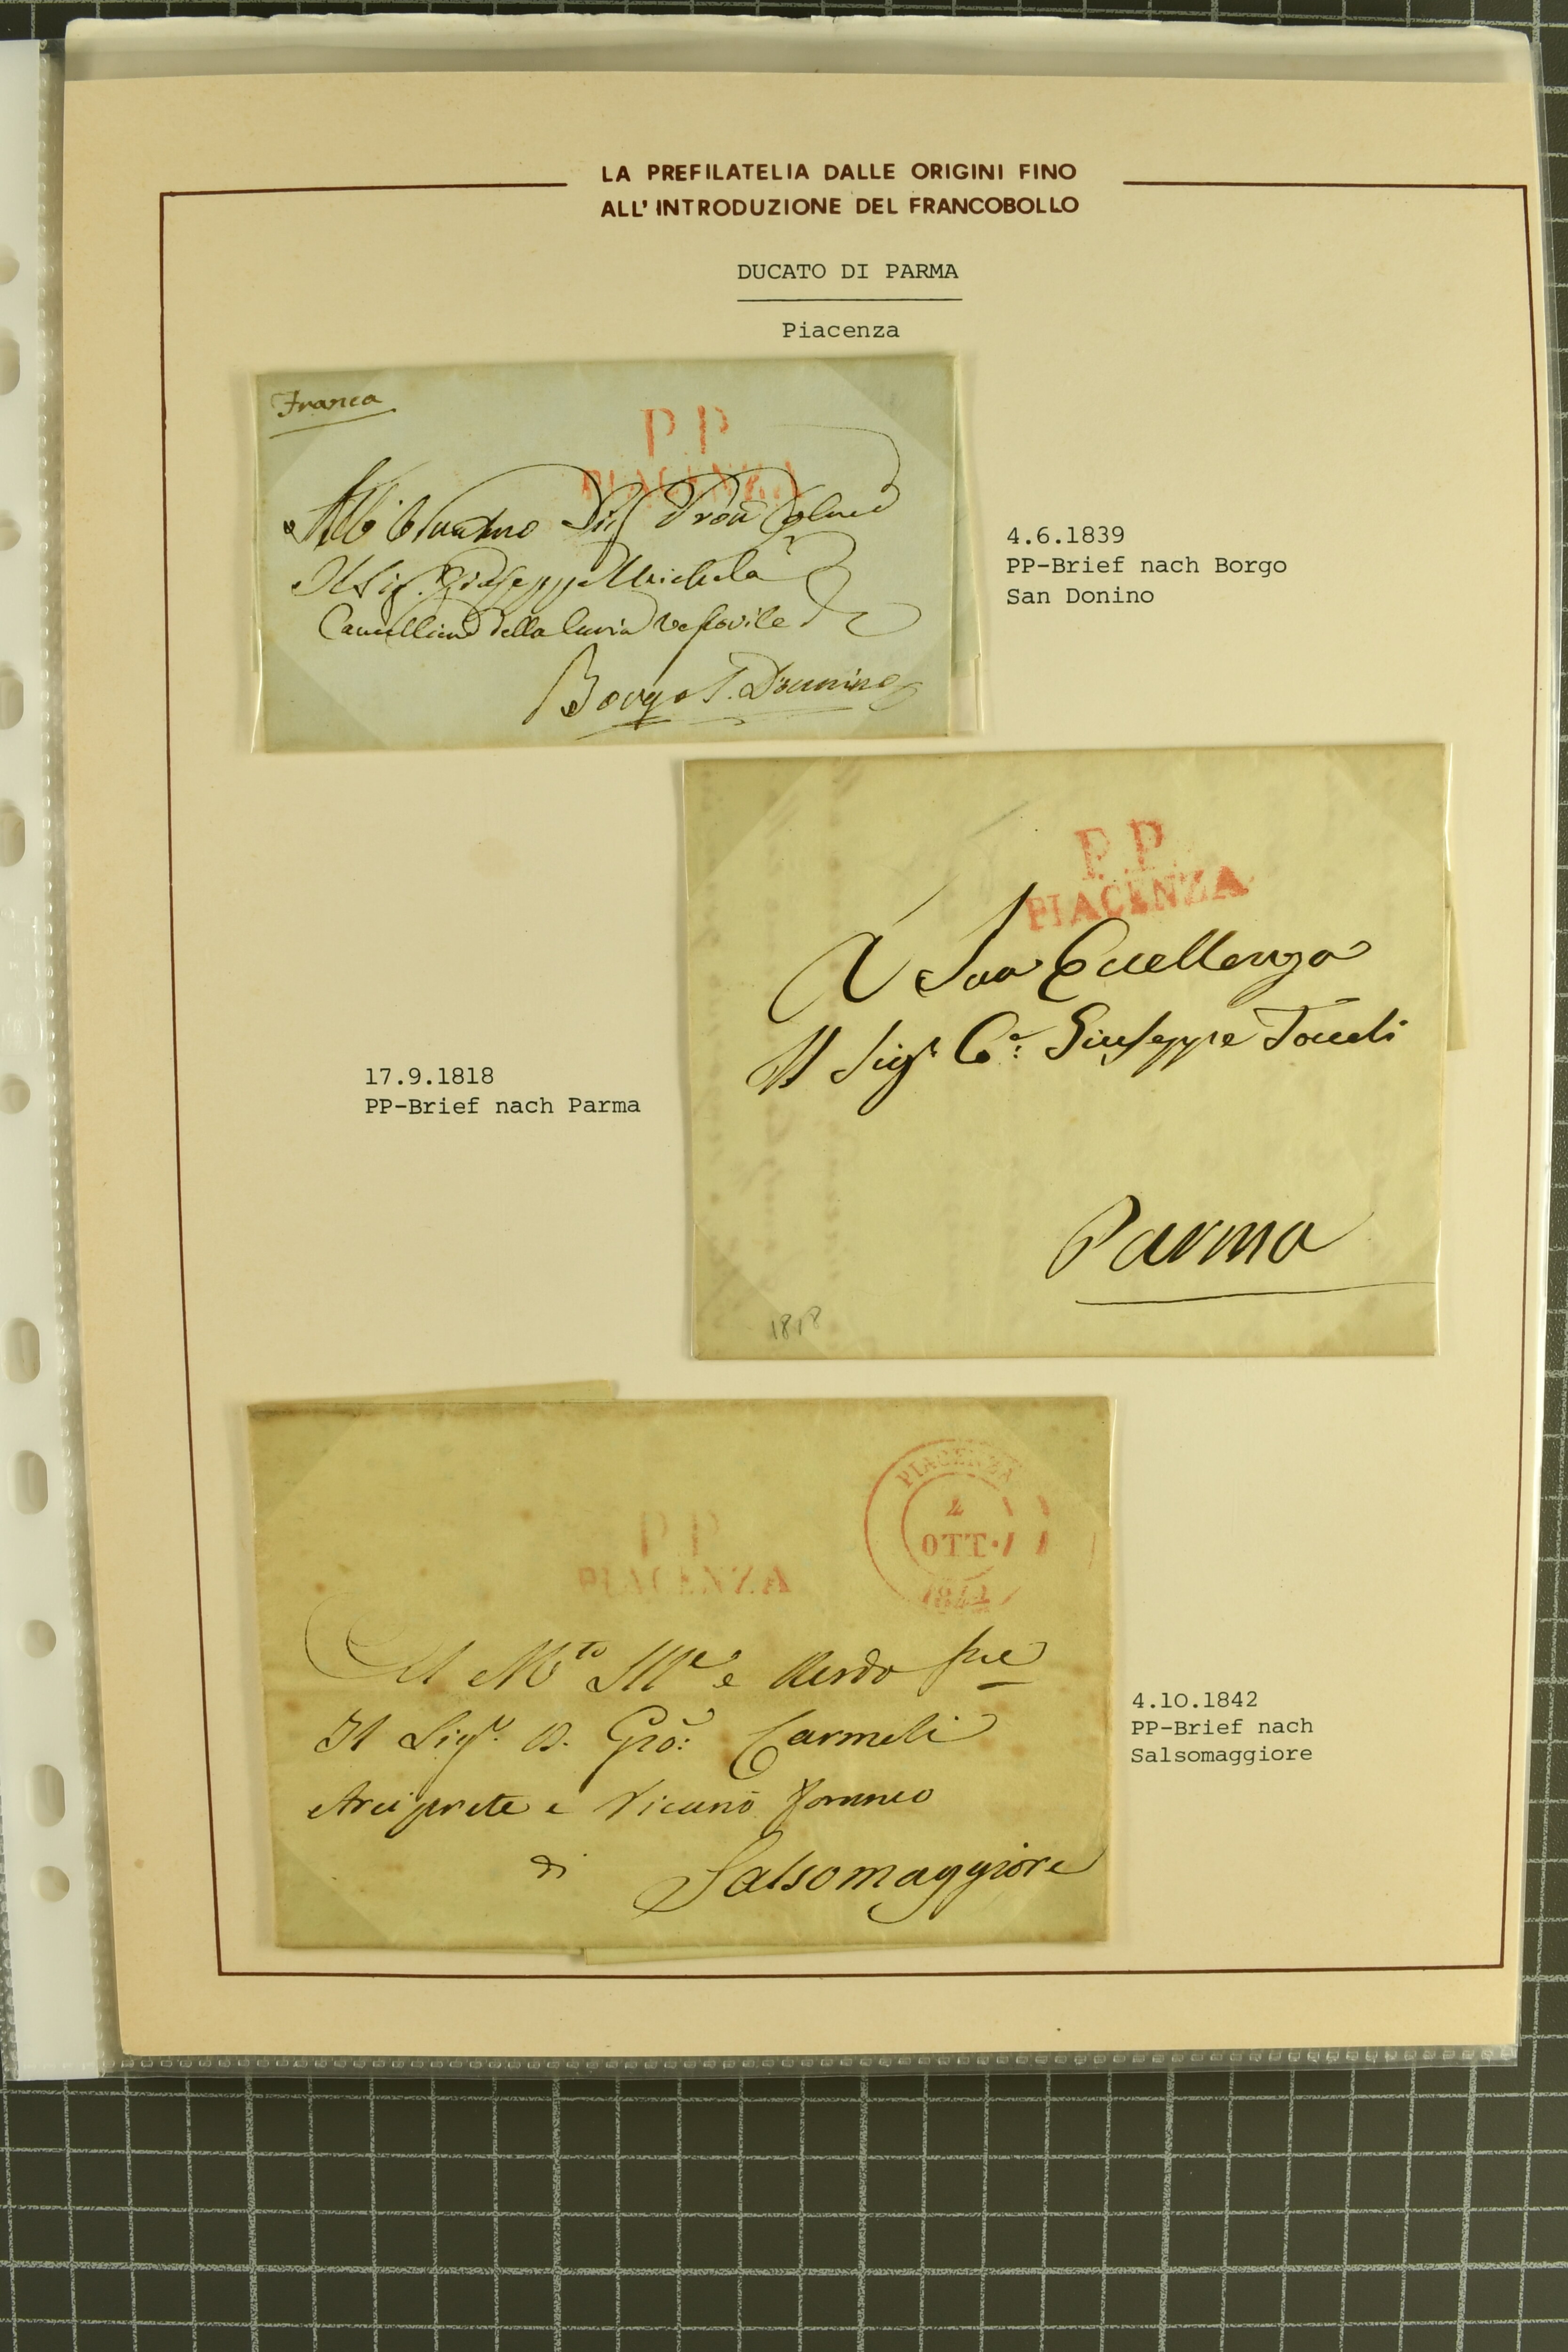 LA PREFILATELIA DALLE ORIGINI FINO
ALL' INTRODUZIONE DEL FRANCOBOLLO
DUCATO DI PARMA
Piacenza
Franca
P.P.
PIACENZA
Il Sig. Giuseppe Michela
della Curia Vescovile
Borgo S. Donnino
4.6.1839
PP-Brief nach Borgo
San Donino
P.P.
PIACENZA
A Sua Eccellenza
Il Sigr. Ce: Giuseppe
Parma
1818
17.9.1818
PP-Brief nach Parma
PIACENZA
2
OTT.
1842
P.P.
PIACENZA
Al Mto Ille e Revdo
Il Sigr. D. Gio: Carmeli
Arciprete e Vicario Foraneo
di Salsomaggiore
4.10.1842
PP-Brief nach
Salsomaggiore